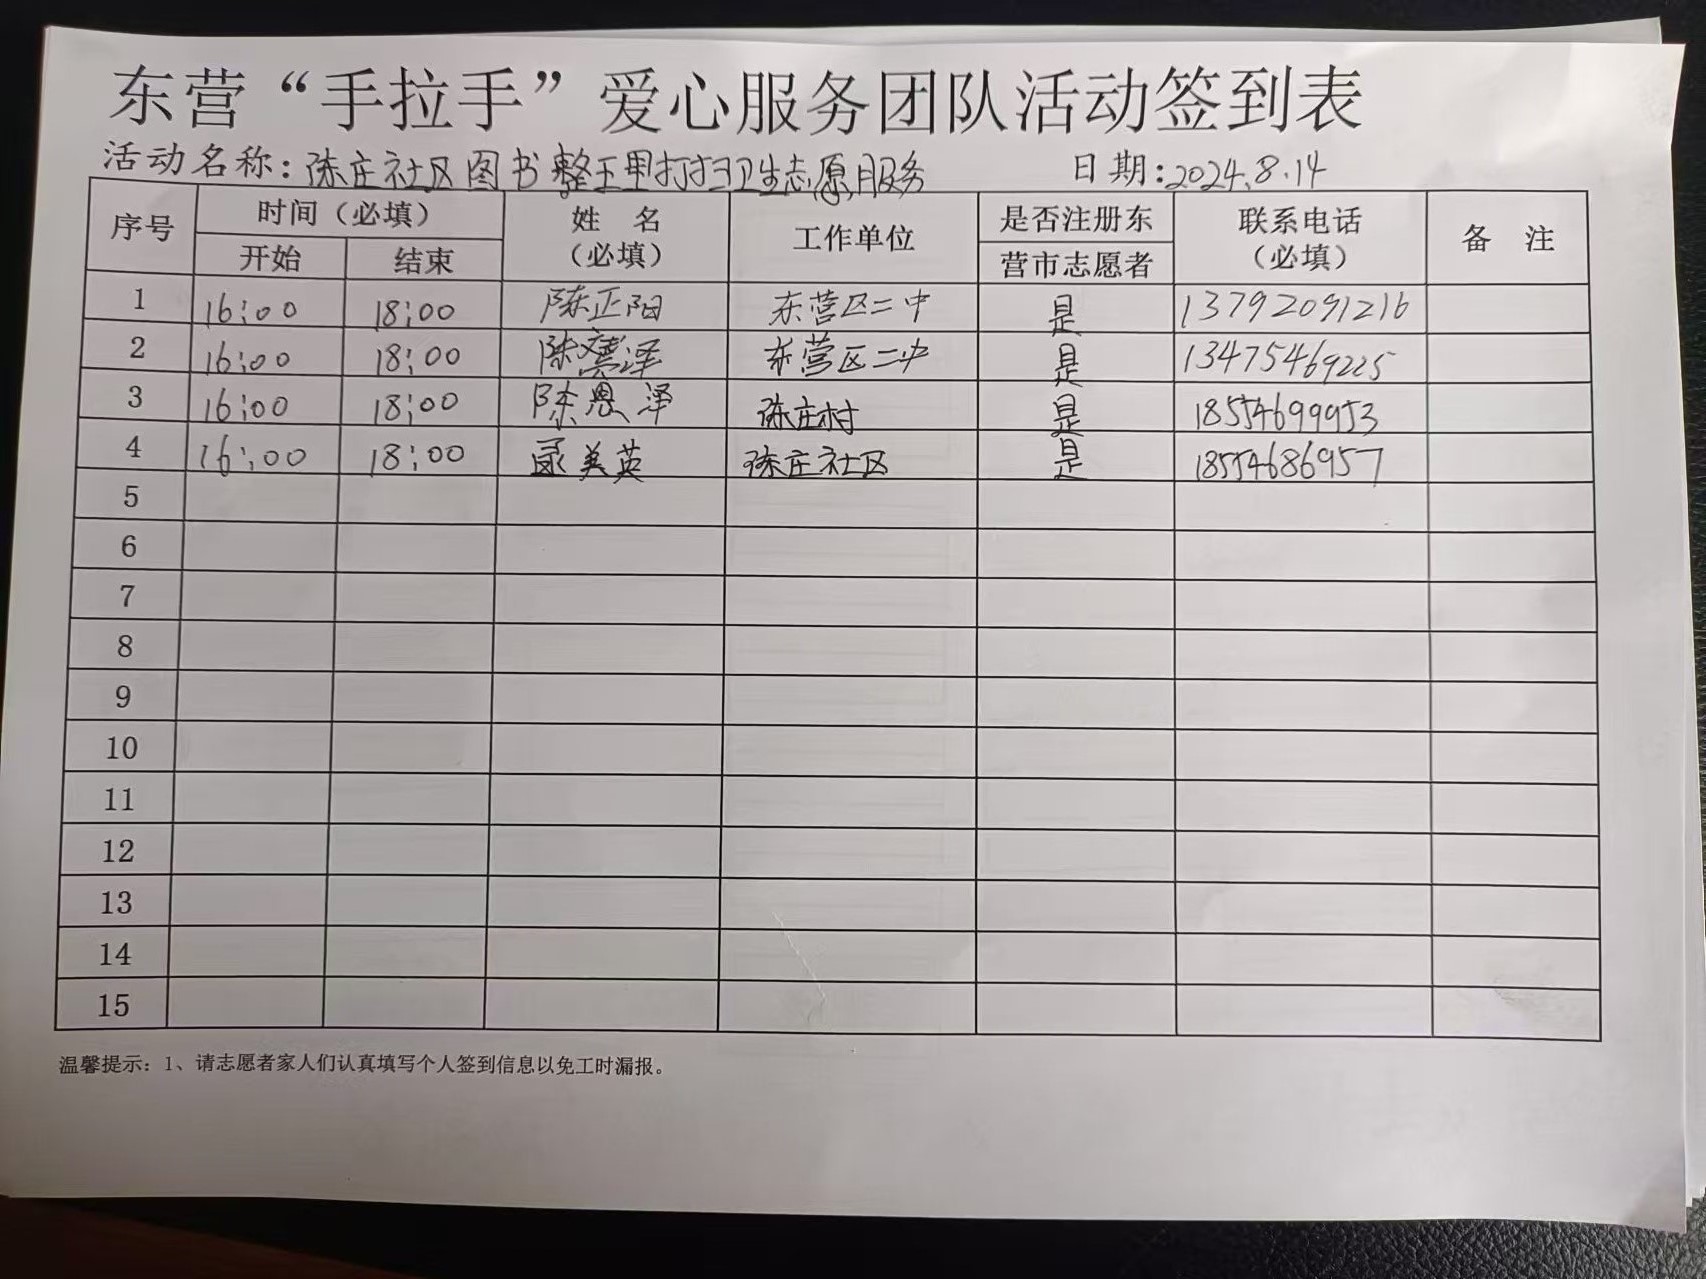 东营“手拉手”爱心服务团队活动签到表
活动名称：陈庄社区图书整理打扫卫生志愿服务 日期：2024.8.14
序号 时间（必填） 姓 名（必填） 工作单位 是否注册东营市志愿者 联系电话（必填） 备 注
开始 结束
1 16:00 18:00 陈正阳 东营区二中 是 13792091216
2 16:00 18:00 陈泽 东营区二中 是 13475469225
3 16:00 18:00 陈恩泽 陈庄村 是 18554699953
4 16:00 18:00 美英 陈庄社区 是 18554686957
5
6
7
8
9
10
11
12
13
14
15
温馨提示：1、请志愿者家人们认真填写个人签到信息以免工时漏报。